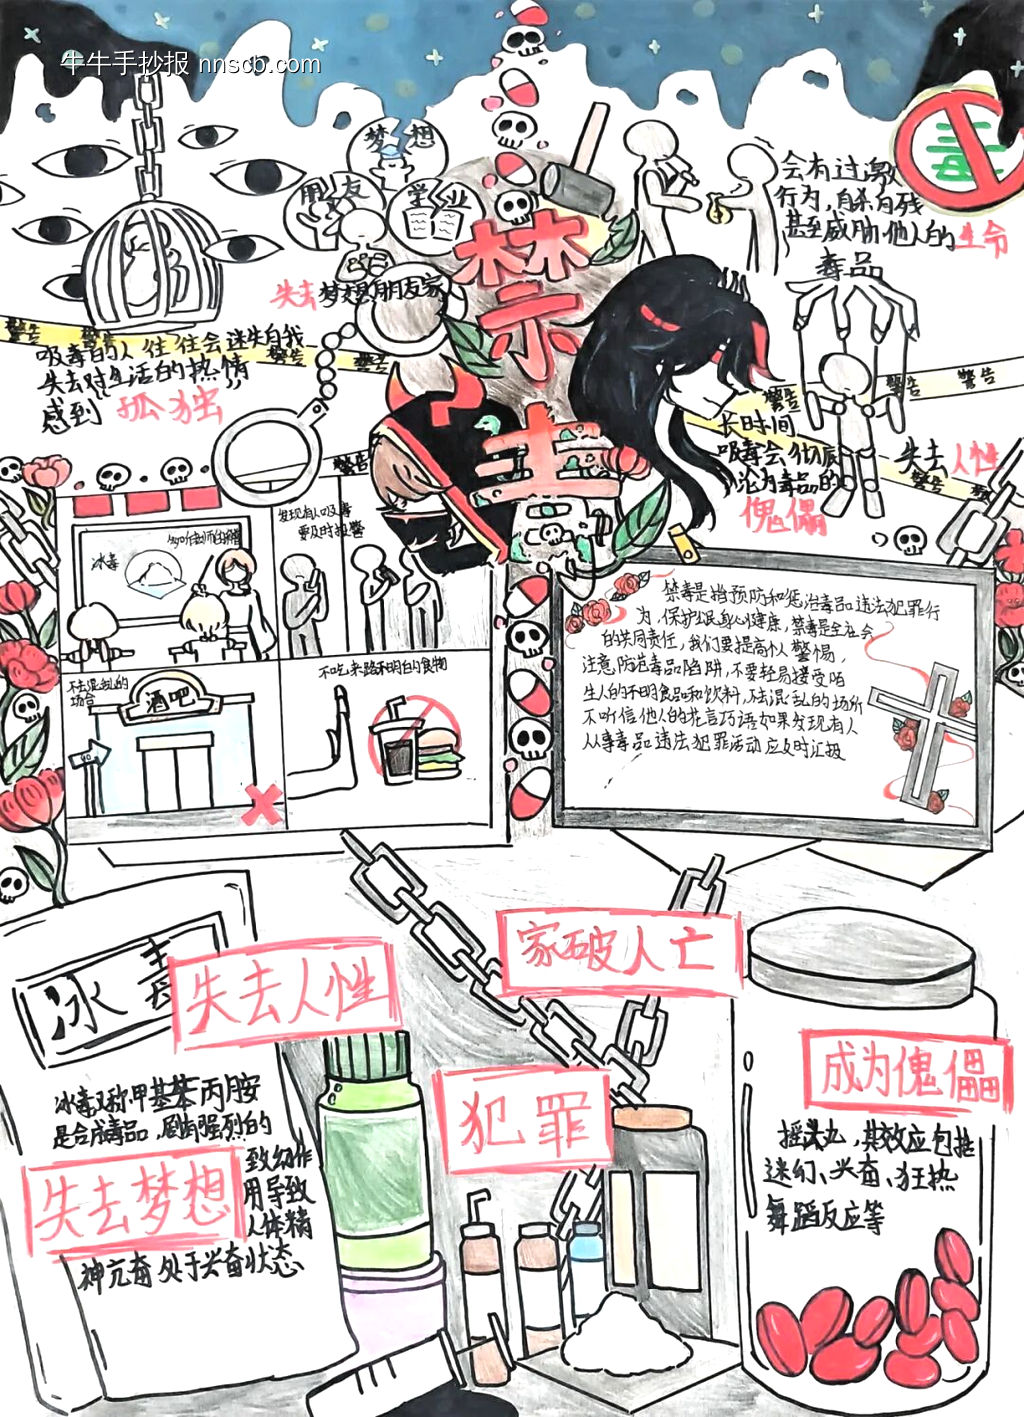 牛牛手抄报 nnscb.com
梦想
朋友
学业
毒
会有过激
行为,自杀自残
甚至威胁他人的生命
失去梦想朋友家
禁毒
毒品
警告
警告
警告
警告
警告
警告
警告
警告
警告
吸毒的人往往会迷失自我
失去对生活的热情
感到孤独
长时间
吸毒会彻底
沦为毒品的
傀儡
失去人性
冰毒
发现有人吸毒
要及时报警
不去混乱的
场合
酒吧
不吃来路不明白的食物
禁毒是指预防和惩治毒品违法犯罪行
为,保护公民身心健康,禁毒是全社会
的共同责任,我们要提高个人警惕,
注意防范毒品陷阱,不要轻易接受陌
生人的不明食品和饮料,不去混乱的场所
不听信他人的花言巧语如果发现有人
从事毒品违法犯罪活动应及时汇报
冰毒
失去人性
家破人亡
冰毒又称甲基苯丙胺
是合成毒品,剧烈强烈的
致幻作
用导致
人体精
神亢奋处于兴奋状态
失去梦想
犯罪
成为傀儡
摇头丸,其效应包括
迷幻、兴奋、狂热
舞蹈反应等